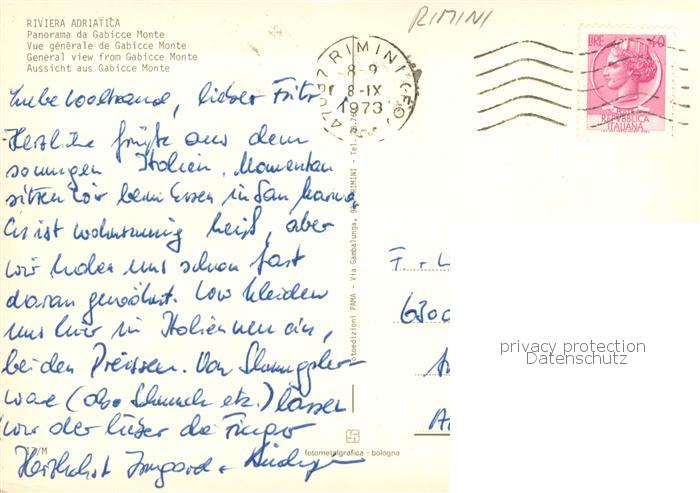 RIVIERA ADRIATICA
Panorama da Gabicce Monte
Vue générale de Gabicce Monte
General view from Gabicce Monte
Aussicht aus Gabicce Monte
RIMINI
47037 RIMINI (FO)
8-9
8-IX
1973
LIRE 40
POSTE
REPVBBLICA
ITALIANA
Liebe Waltraud, lieber Fritz,
Herzliche Grüße aus dem
sonnigen Italien. Momentan
sitzen wir beim Essen in San Marino
Es ist wahnsinnig heiß, aber
wir haben uns schon fast
daran gewöhnt. Wir kleiden
uns hier in Italien neu ein,
bei den Preisen. Von Schmuggler-
ware (also Schmuck etc.) lassen
wir aber lieber die Finger
Herzlichst Irmgard +
Fotoedizioni PAMA - Via Gambalunga, RIMINI - Tel.
fotometalgrafica - bologna
F. +
6300
privacy protection
Datenschutz